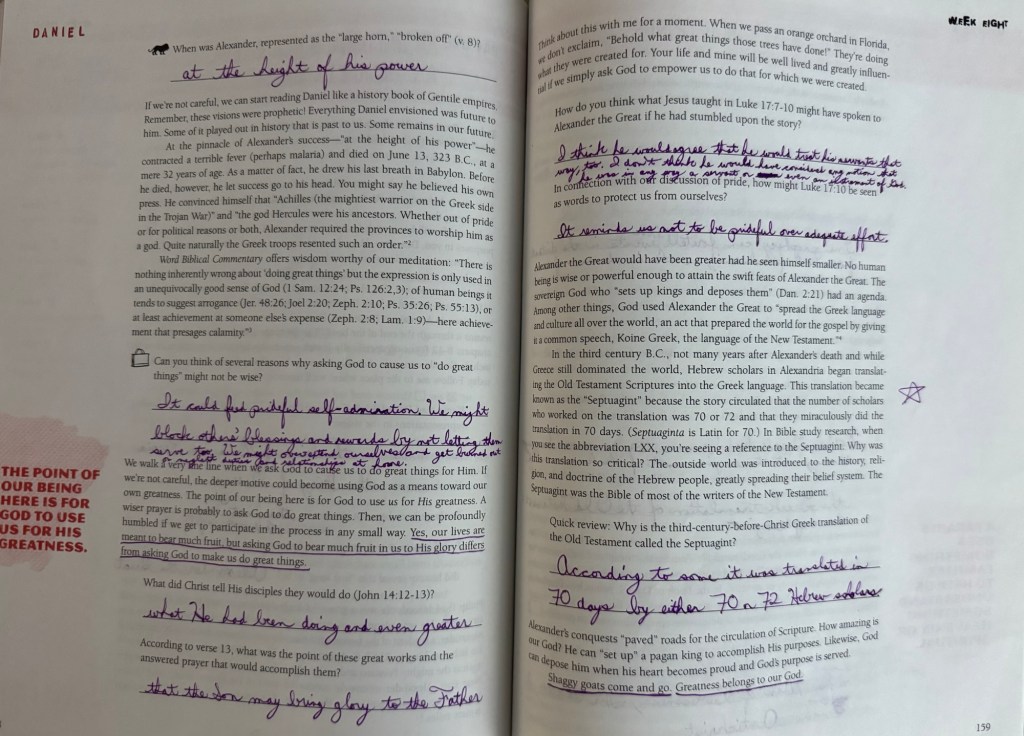 DANIEL
When was Alexander, represented as the "large horn," "broken off" (v. 8)?
at the height of his power
If we're not careful, we can start reading Daniel like a history book of Gentile empires.
Remember, these visions were prophetic! Everything Daniel envisioned was future to
him. Some of it played out in history that is past to us. Some remains in our future.
At the pinnacle of Alexander's success—"at the height of his power"—he
contracted a terrible fever (perhaps malaria) and died on June 13, 323 B.C., at a
mere 32 years of age. As a matter of fact, he drew his last breath in Babylon. Before
he died, however, he let success go to his head. You might say he believed his own
press. He convinced himself that "Achilles (the mightiest warrior on the Greek side
in the Trojan War)" and "the god Hercules were his ancestors. Whether out of pride
or for political reasons or both, Alexander required the provinces to worship him as
a god. Quite naturally the Greek troops resented such an order."2
Word Biblical Commentary offers wisdom worthy of our meditation: "There is
nothing inherently wrong about 'doing great things' but the expression is only used in
an unequivocally good sense of God (1 Sam. 12:24; Ps. 126:2,3); of human beings it
tends to suggest arrogance (Jer. 48:26; Joel 2:20; Zeph. 2:10; Ps. 35:26; Ps. 55:13), or
at least achievement at someone else's expense (Zeph. 2:8; Lam. 1:9)—here achieve-
ment that presages calamity."3
Can you think of several reasons why asking God to cause us to "do great
things" might not be wise?
It could feed prideful self-admiration. We might
block others' blessings and rewards by not letting them
serve too. We might overextend ourselves and get burned out
or neglect duties and relationships at home.
We walk a very fine line when we ask God to cause us to do great things for Him. If
we're not careful, the deeper motive could become using God as a means toward our
own greatness. The point of our being here is for God to use us for His greatness. A
wiser prayer is probably to ask God to do great things. Then, we can be profoundly
humbled if we get to participate in the process in any small way. Yes, our lives are
meant to bear much fruit, but asking God to bear much fruit in us to His glory differs
from asking God to make us do great things.
THE POINT OF
OUR BEING
HERE IS FOR
GOD TO USE
US FOR HIS
GREATNESS.
What did Christ tell His disciples they would do (John 14:12-13)?
what He had been doing and even greater
According to verse 13, what was the point of these great works and the
answered prayer that would accomplish them?
that the Son may bring glory to the Father
WEEK EIGHT
Think about this with me for a moment. When we pass an orange orchard in Florida,
we don't exclaim, "Behold what great things those trees have done!" They're doing
what they were created for. Your life and mine will be well lived and greatly influen-
tial if we simply ask God to empower us to do that for which we were created.
How do you think what Jesus taught in Luke 17:7-10 might have spoken to
Alexander the Great if he had stumbled upon the story?
I think he would agree that he would treat his servants that
way, too. I don't think he would have considered any notion that
he was in any way a servant or even an instrument of God.
In connection with our discussion of pride, how might Luke 17:10 be seen
as words to protect us from ourselves?
It reminds us not to be prideful over adequate effort.
Alexander the Great would have been greater had he seen himself smaller. No human
being is wise or powerful enough to attain the swift feats of Alexander the Great. The
sovereign God who "sets up kings and deposes them" (Dan. 2:21) had an agenda.
Among other things, God used Alexander the Great to "spread the Greek language
and culture all over the world, an act that prepared the world for the gospel by giving
it a common speech, Koine Greek, the language of the New Testament."4
In the third century B.C., not many years after Alexander's death and while
Greece still dominated the world, Hebrew scholars in Alexandria began translat-
ing the Old Testament Scriptures into the Greek language. This translation became
known as the "Septuagint" because the story circulated that the number of scholars
who worked on the translation was 70 or 72 and that they miraculously did the
translation in 70 days. (Septuaginta is Latin for 70.) In Bible study research, when
you see the abbreviation LXX, you're seeing a reference to the Septuagint. Why was
this translation so critical? The outside world was introduced to the history, reli-
gion, and doctrine of the Hebrew people, greatly spreading their belief system. The
Septuagint was the Bible of most of the writers of the New Testament.
Quick review: Why is the third-century-before-Christ Greek translation of
the Old Testament called the Septuagint?
According to some it was translated in
70 days by either 70 or 72 Hebrew scholars
Alexander's conquests "paved" roads for the circulation of Scripture. How amazing is
our God? He can "set up" a pagan king to accomplish His purposes. Likewise, God
can depose him when his heart becomes proud and God's purpose is served.
Shaggy goats come and go. Greatness belongs to our God.
159